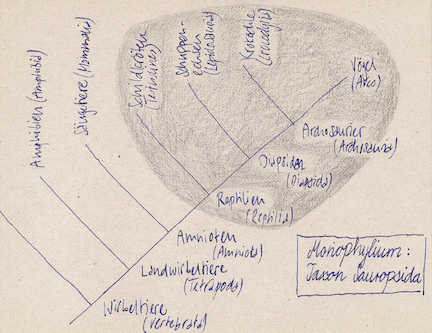 Amphibien (Amphibia)
Säugetiere (Mammalia)
Schildkröten
(Testudines)
Schuppen-
echsen
(Lepidosauria)
Krokodile
(Crocodylia)
Vögel
(Aves)
Archosaurier
(Archosauria)
Diapsiden
(Diapsida)
Reptilien
(Reptilia)
Amnioten
(Amniota)
Landwirbeltiere
(Tetrapoda)
Wirbeltiere
(Vertebrata)
Monophylium:
Taxon Sauropsida